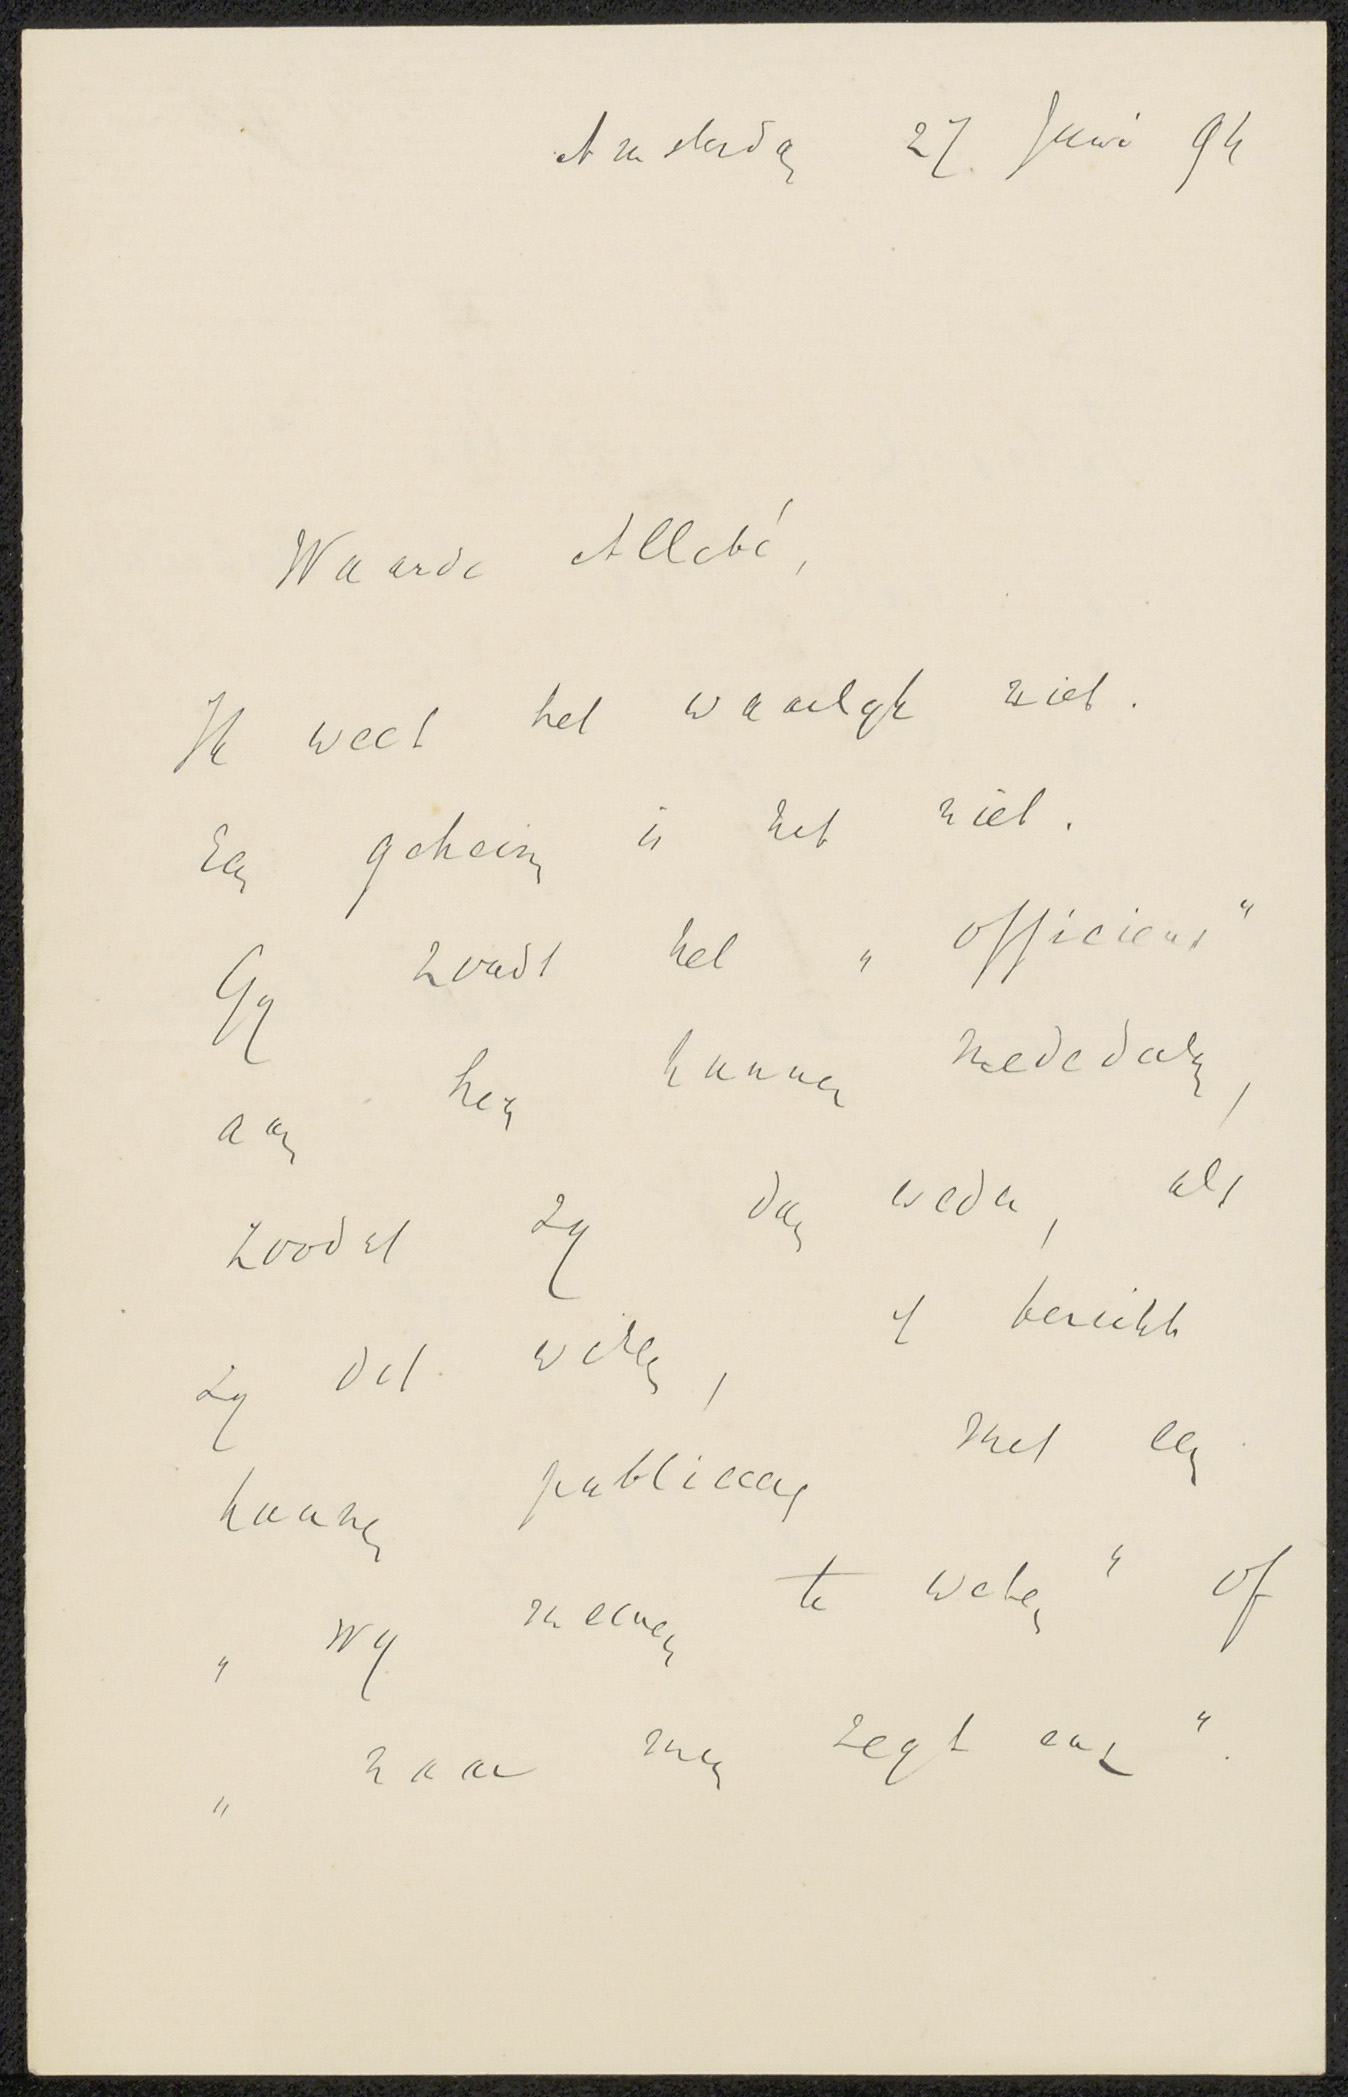 Amsterdam 27 Juni 94
Waarde Allebé,
Ik weet het waarlijk niet.
Een geheim is het niet.
Gij zoudt het „officieus"
aan hen kunnen mededeelen,
zoodat zij dan weder, als
zij dat willen, 't bericht
kunnen publiceeren met een
„wij meenen te weten" of
„naar men zegt enz".